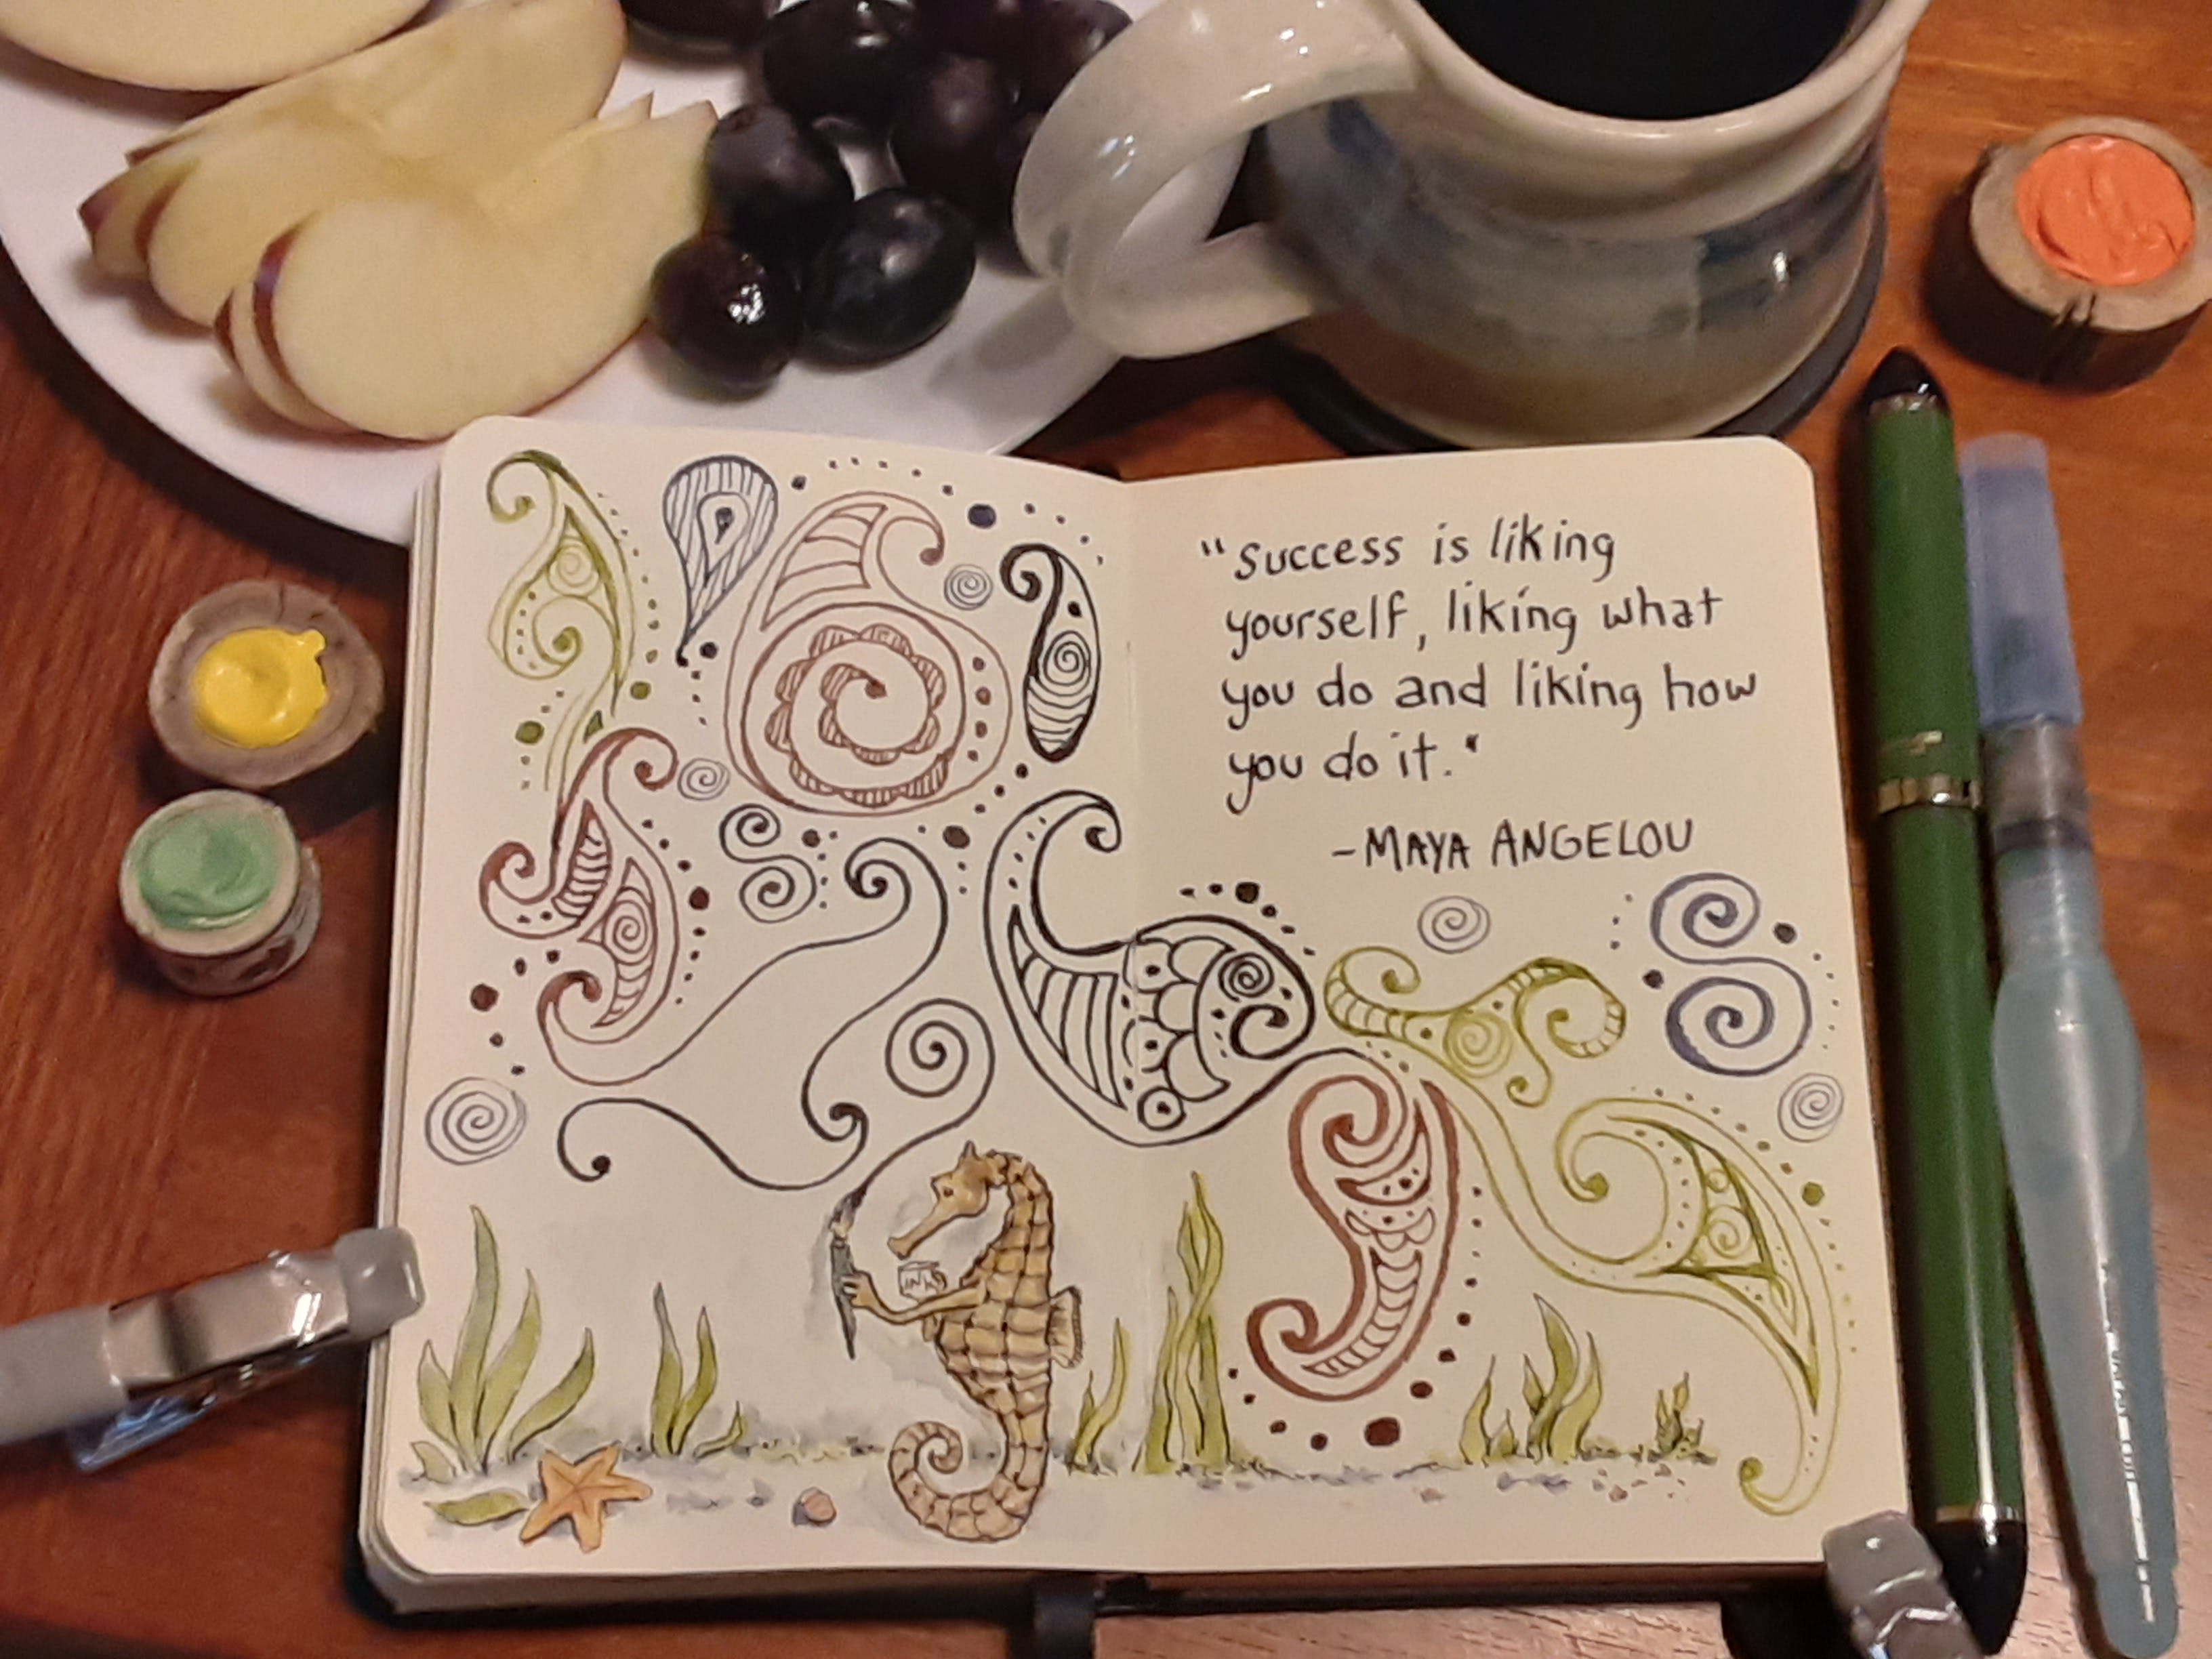 "Success is liking
yourself, liking what
you do and liking how
you do it."
-MAYA ANGELOU
INK